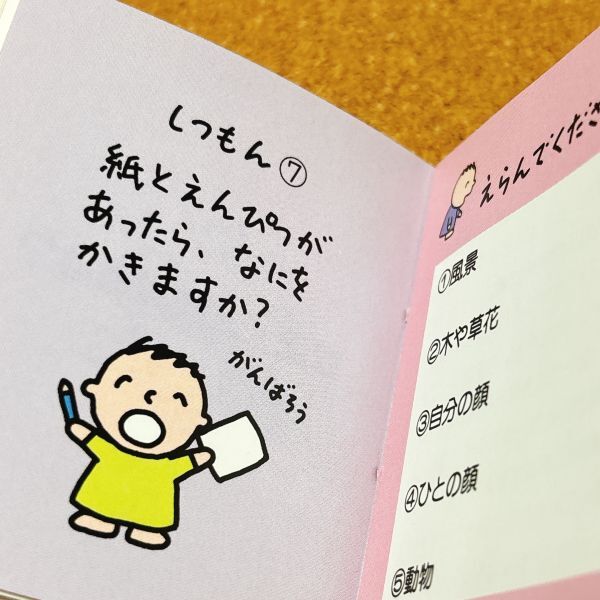 しつもん⑦
紙とえんぴつが
あったら、なにを
かきますか?
がんばろう
えらんでくださ
①風景
②木や草花
③自分の顔
④ひとの顔
⑤動物